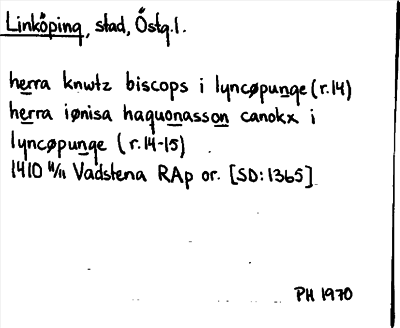 Linköping, stad, Östg.l.
herra knwtz biscops i lyncøpunge (r.14)
herra iønisa haquonasson canokx i
lyncøpunge (r.14-15)
1410 11/11 Vadstena RAp or. [SD:1365]
PH 1970